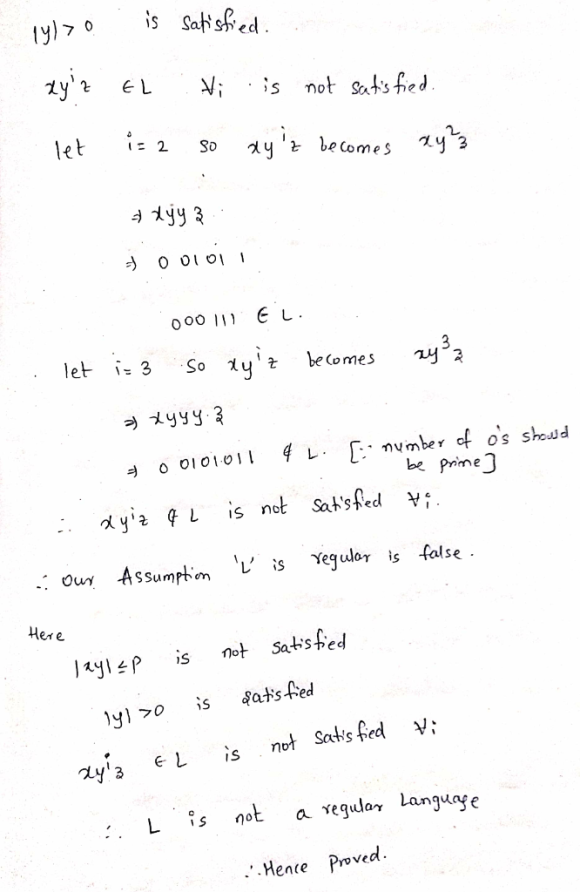 |y| > 0 is satisfied.
xyⁱz ∈ L ∀i is not satisfied.
let i = 2 so xyⁱz becomes xy²z
⇒ xyyz
⇒ 0 01 01 1
000 111 ∈ L.
let i = 3 so xyⁱz becomes xy³z
⇒ xyyy.z
⇒ 0 0101011 ∉ L. [∵ number of 0's should
be prime]
∴ xyⁱz ∉ L is not satisfied ∀i.
∴ our Assumption 'L' is regular is false.
Here
|xy| ≤ P is not satisfied
|y| > 0 is satisfied
xyⁱz ∈ L is not satisfied ∀i
∴ L is not a regular Language
∴ Hence Proved.